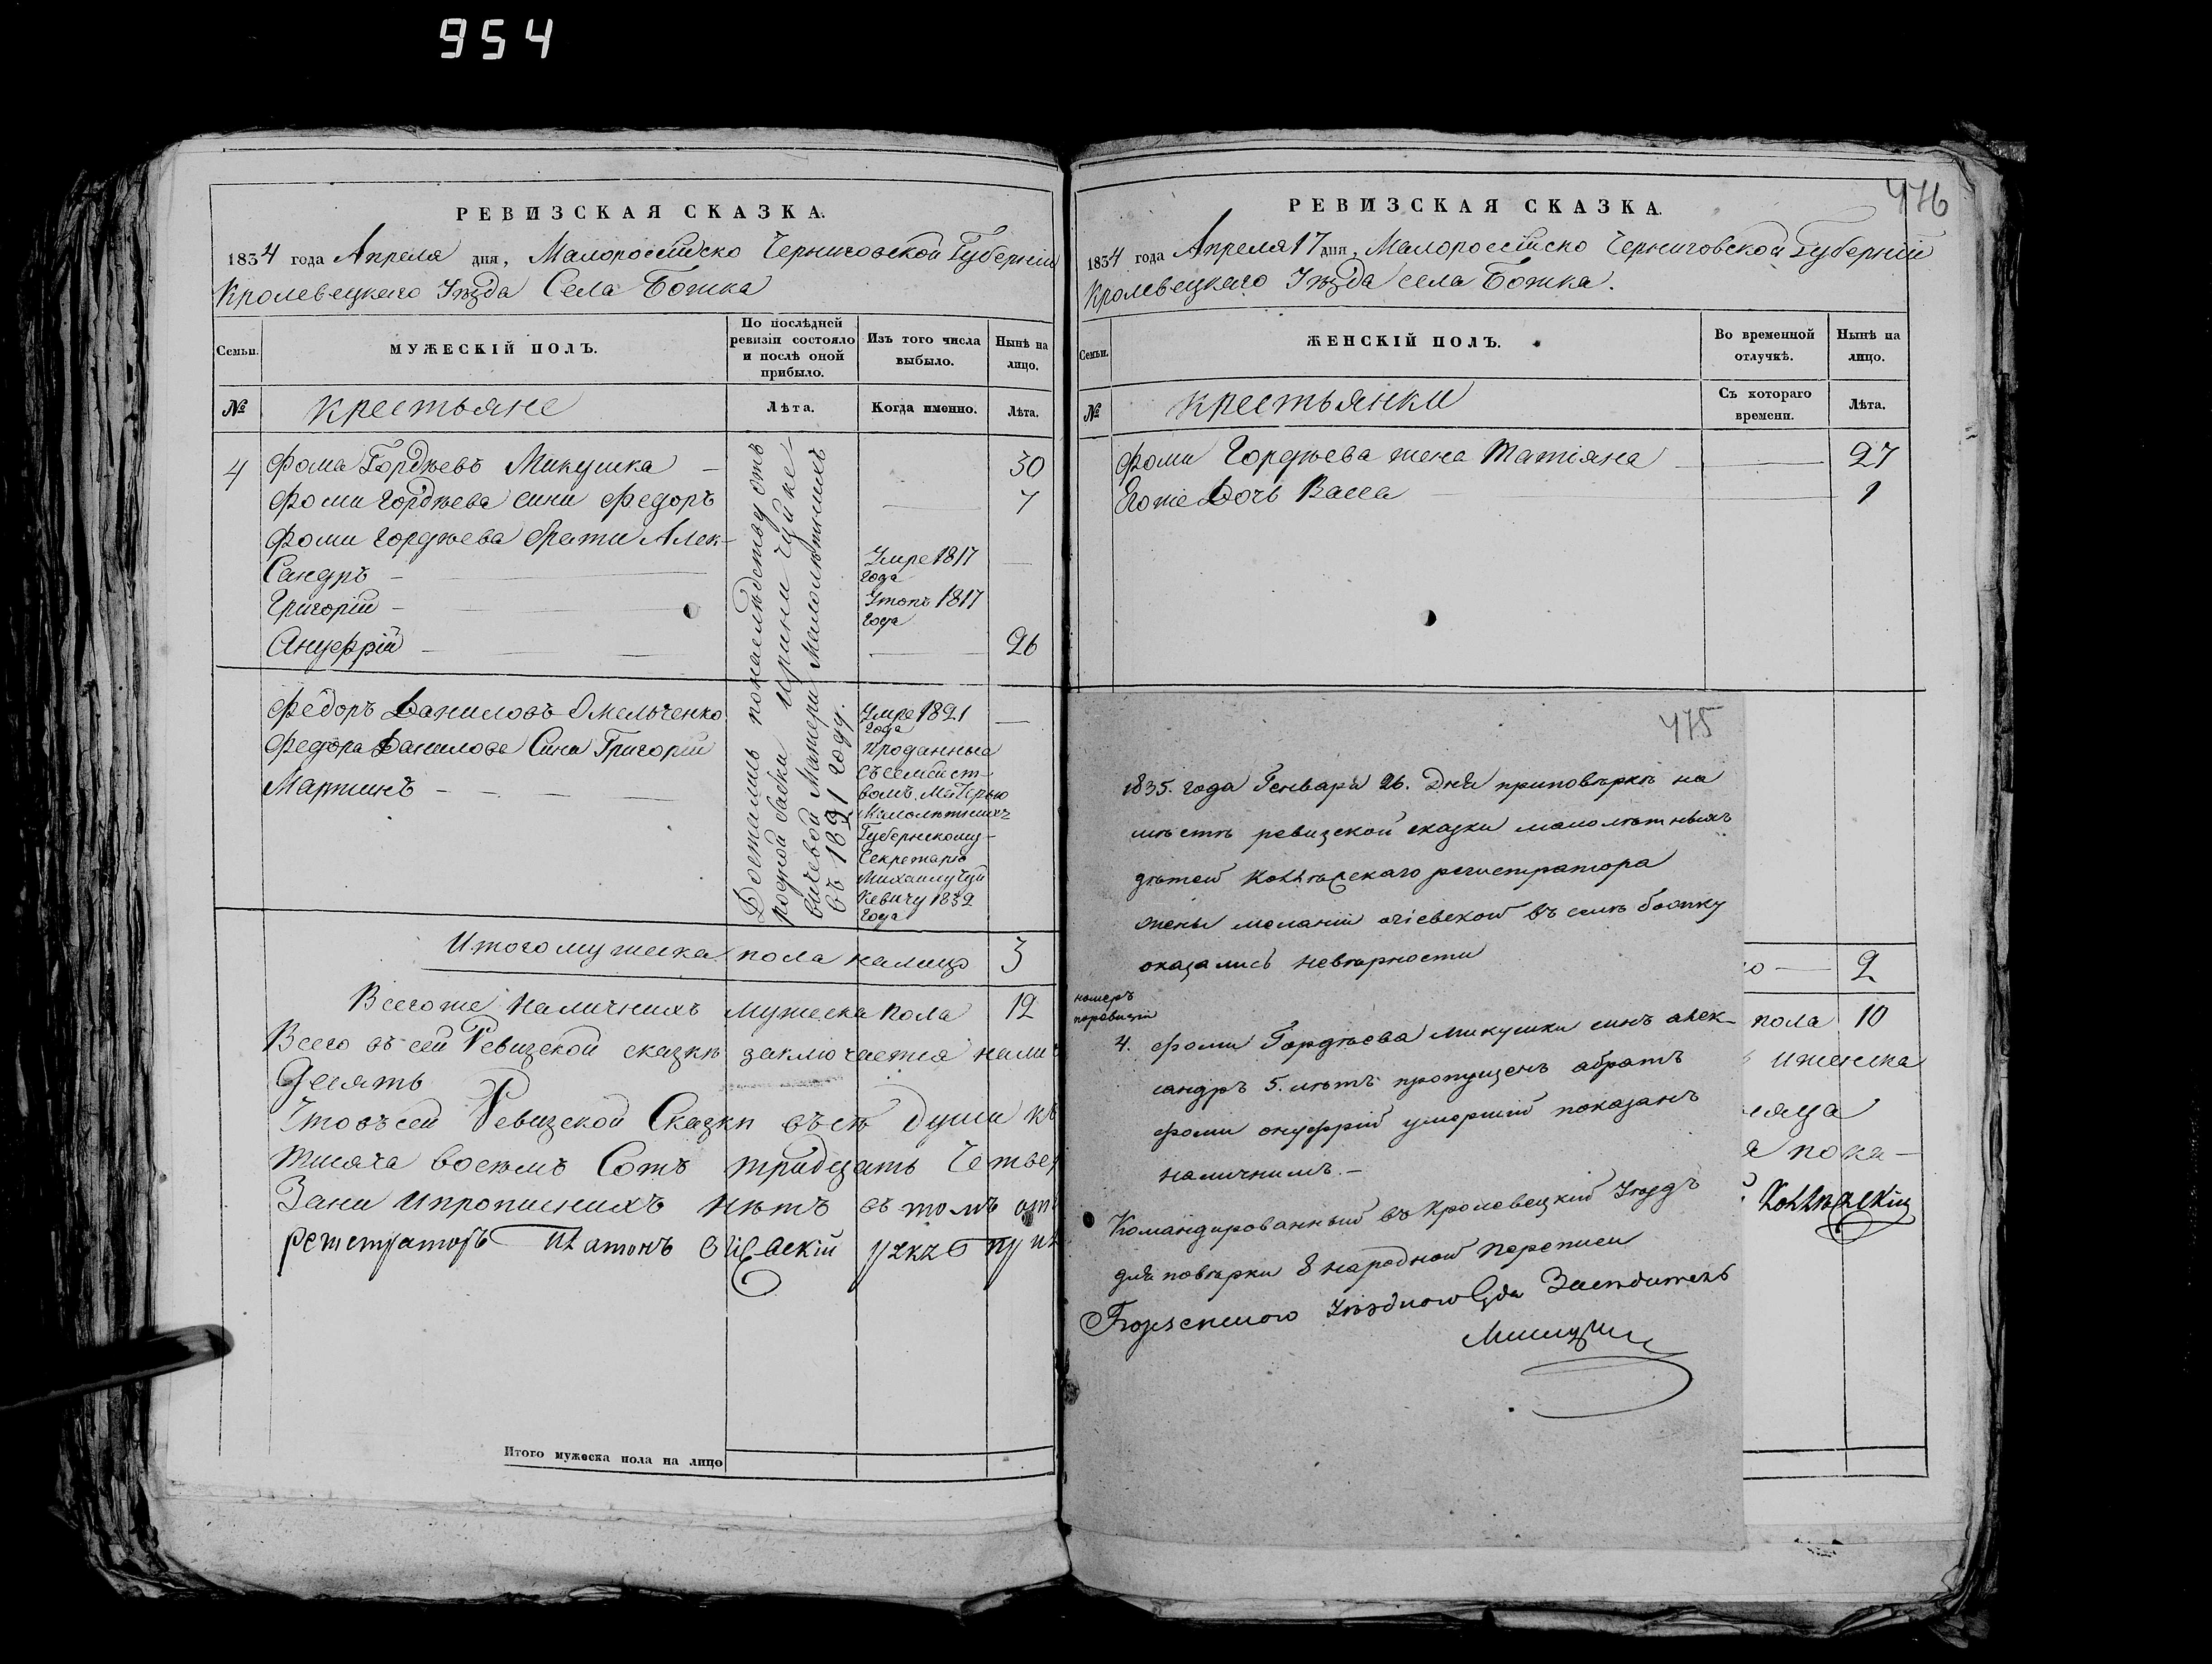 954
РЕВИЗСКАЯ СКАЗКА.
1834 года Апреля дня, Малоросійско Черниговской Губерніи
Кролевецкаго Уѣзда Села Божка
Семьи.
МУЖЕСКІЙ ПОЛЪ.
По послѣдней
ревизіи состояло
и послѣ оной
прибыло.
Изъ того числа
выбыло.
Нынѣ на
лицо.
№
крестьяне
Лѣта.
Когда именно.
Лѣта.
4 Фома Гордѣевъ Микушка 30
Фоми Гордѣева сини Федоръ 7
Фоми Гордѣева брати Алек-
сандръ Умре 1817
года
Григорій Утопъ 1817
года
Ануфрій 26
Досталис понаслѣдству отъ
родной бабки Ирини Чуйке-
вичевой Матери Малолѣтнихъ
въ 1821 году.
Федоръ Даниловъ Омельченко Умре 1821
года
Федора Данилова Сини Григорій
Мартинъ
проданные
съ семейст-
вомъ Матерью
Малолѣтнихъ
Губернскому
Секретарю
Михаилу Чуй
кевичу 1832
года
Итого мужеска пола налицо 3
Всегоже наличнихъ мужеска пола 12
Всего въ сей Ревизской сказкѣ заключается нали
десять
Что въ сей Ревизской Сказки въсѣ души къ
тисяча восемъ Сотъ тридцать Четвер
зани и прописнихъ нѣтъ въ томъ
регистраторъ Платонъ
Итого мужеска пола на лицо
476
РЕВИЗСКАЯ СКАЗКА.
1834 года Апреля 17 дня, Малоросійско Черниговской Губерніи
Кролевецкаго Уѣзда села Божка.
Семьи.
ЖЕНСКІЙ ПОЛЪ.
Во временной
отлучкѣ.
Нынѣ на
лицо.
№
крестьянки
Съ котораго
времени.
Лѣта.
Фоми Гордѣева жена Татіяна 27
Егоже Дочь Васса 1
475
1835. года Генваря 26. Дня приповѣркѣ на
мѣстѣ ревизской сказки малолѣтныхъ
дѣтей Коллежскаго регистратора
жены меланіи огіевской въ селѣ божку
оказались невѣрности
номеръ
поревизіи
4. Фоми Гордѣева микушки синъ алек-
сандръ 5. лѣтъ пропущенъ абратъ
фоми онуфрій умершій показанъ
наличнимъ.-
Командированный въ Кролевецкій Уѣздъ
для повѣрки 8 народной переписи
Уѣзднаго Суда Засѣдатель
о 2
пола 10
иженска
сяца
а пока-
Коллѣжскій